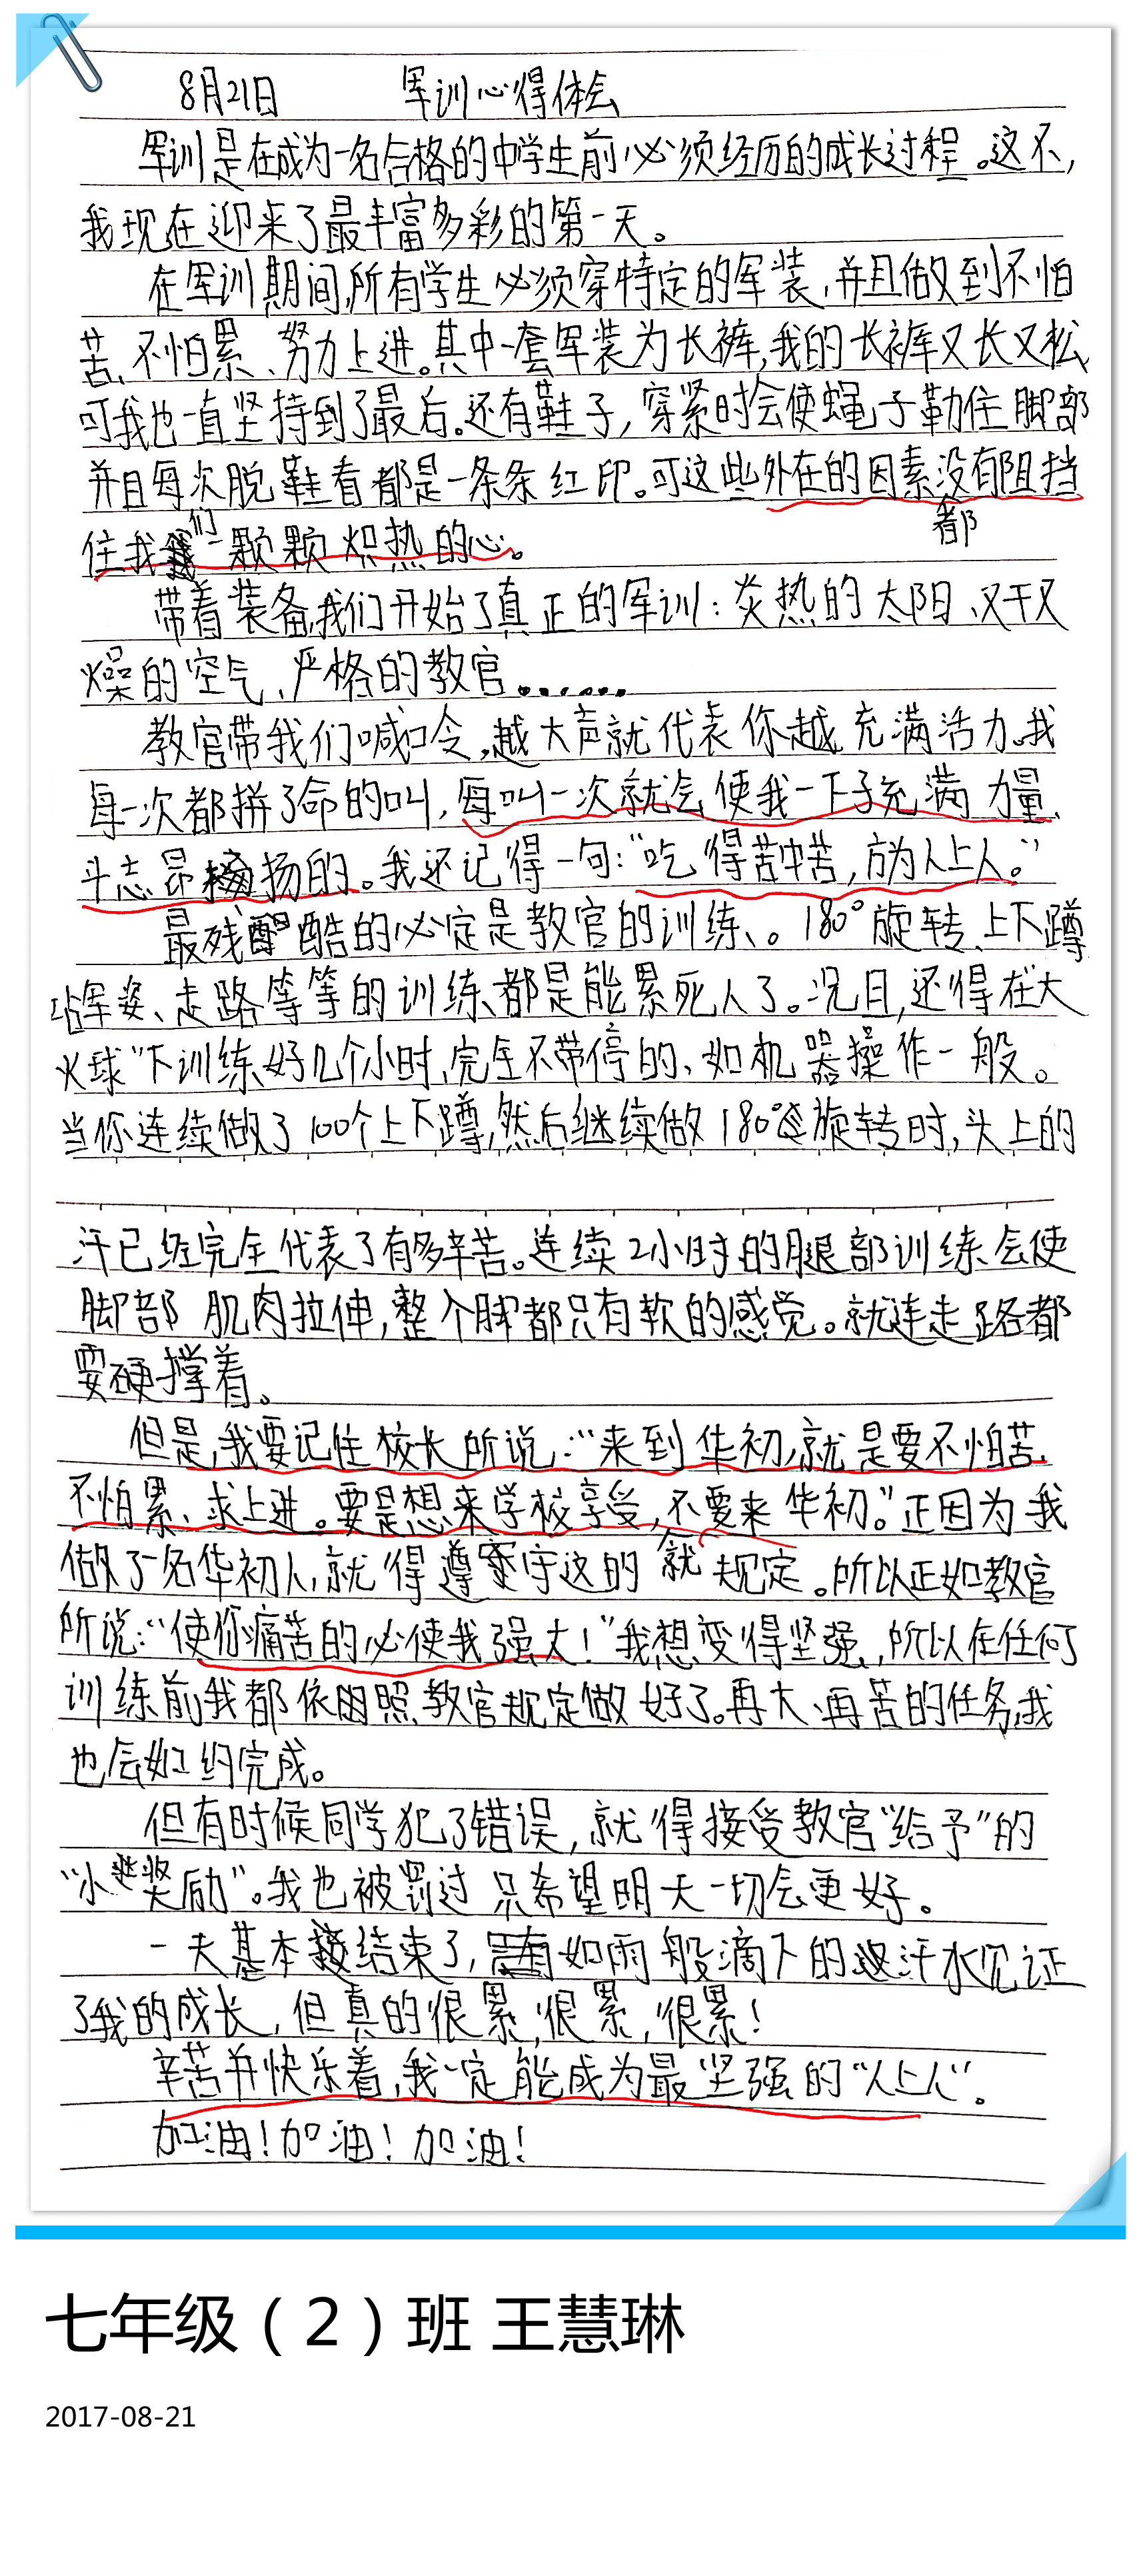 8月21日 军训心得体会
军训是在成为一名合格的中学生前必须经历的成长过程。这不，
我现在迎来了最丰富多彩的第一天。
在军训期间，所有学生必须穿特定的军装，并且做到不怕
苦、不怕累、努力上进。其中一套军装为长裤，我的长裤又长又松，
可我也一直坚持到了最后。还有鞋子，穿紧时会使绳子勒住脚部
并且每次脱鞋看都是一条条红印。可这些外在的因素都没有阻挡
住我们一颗颗炽热的心。
带着装备，我们开始了真正的军训：炎热的太阳、又干又
燥的空气、严格的教官.......
教官带我们喊口令，越大声就代表你越充满活力。我
每一次都拼了命的叫，每叫一次就会使我一下子充满力量、
斗志昂扬的。我还记得一句：“吃得苦中苦，方为人上人。”
最残酷的必定是教官的训练、。180°旋转、上下蹲
站军姿、走路等等的训练都是能累死人了。况且，还得在“大
火球”下训练好几个小时，完全不带停的、如机器操作一般。
当你连续做了100个上下蹲，然后继续做180°旋转时，头上的
汗已经完全代表了有多辛苦。连续2小时的腿部训练会使
脚部肌肉拉伸，整个脚都只有软的感觉。就连走路都
要硬撑着。
但是，我要记住校长所说：“来到华初，就是要不怕苦、
不怕累、求上进。要是想来学校享受，不要来华初。”正因为我
做了一名华初人，就得遵守这的规定。所以正如教官
所说：“使你痛苦的必使我强大！”我想变得坚强，所以在任何
训练前，我都依照教官规定做好了。再大、再苦的任务，我
也会如约完成。
但有时候同学犯了错误，就得接受教官“给予”的
“小奖励”。我也被罚过，只希望明天一切会更好。
一天基本结束了，有如雨般滴下的汗水见证
了我的成长，但真的很累，很累，很累！
辛苦并快乐着，我一定能成为最坚强的“人上人”。
加油！加油！加油！
七年级（2）班 王慧琳
2017-08-21